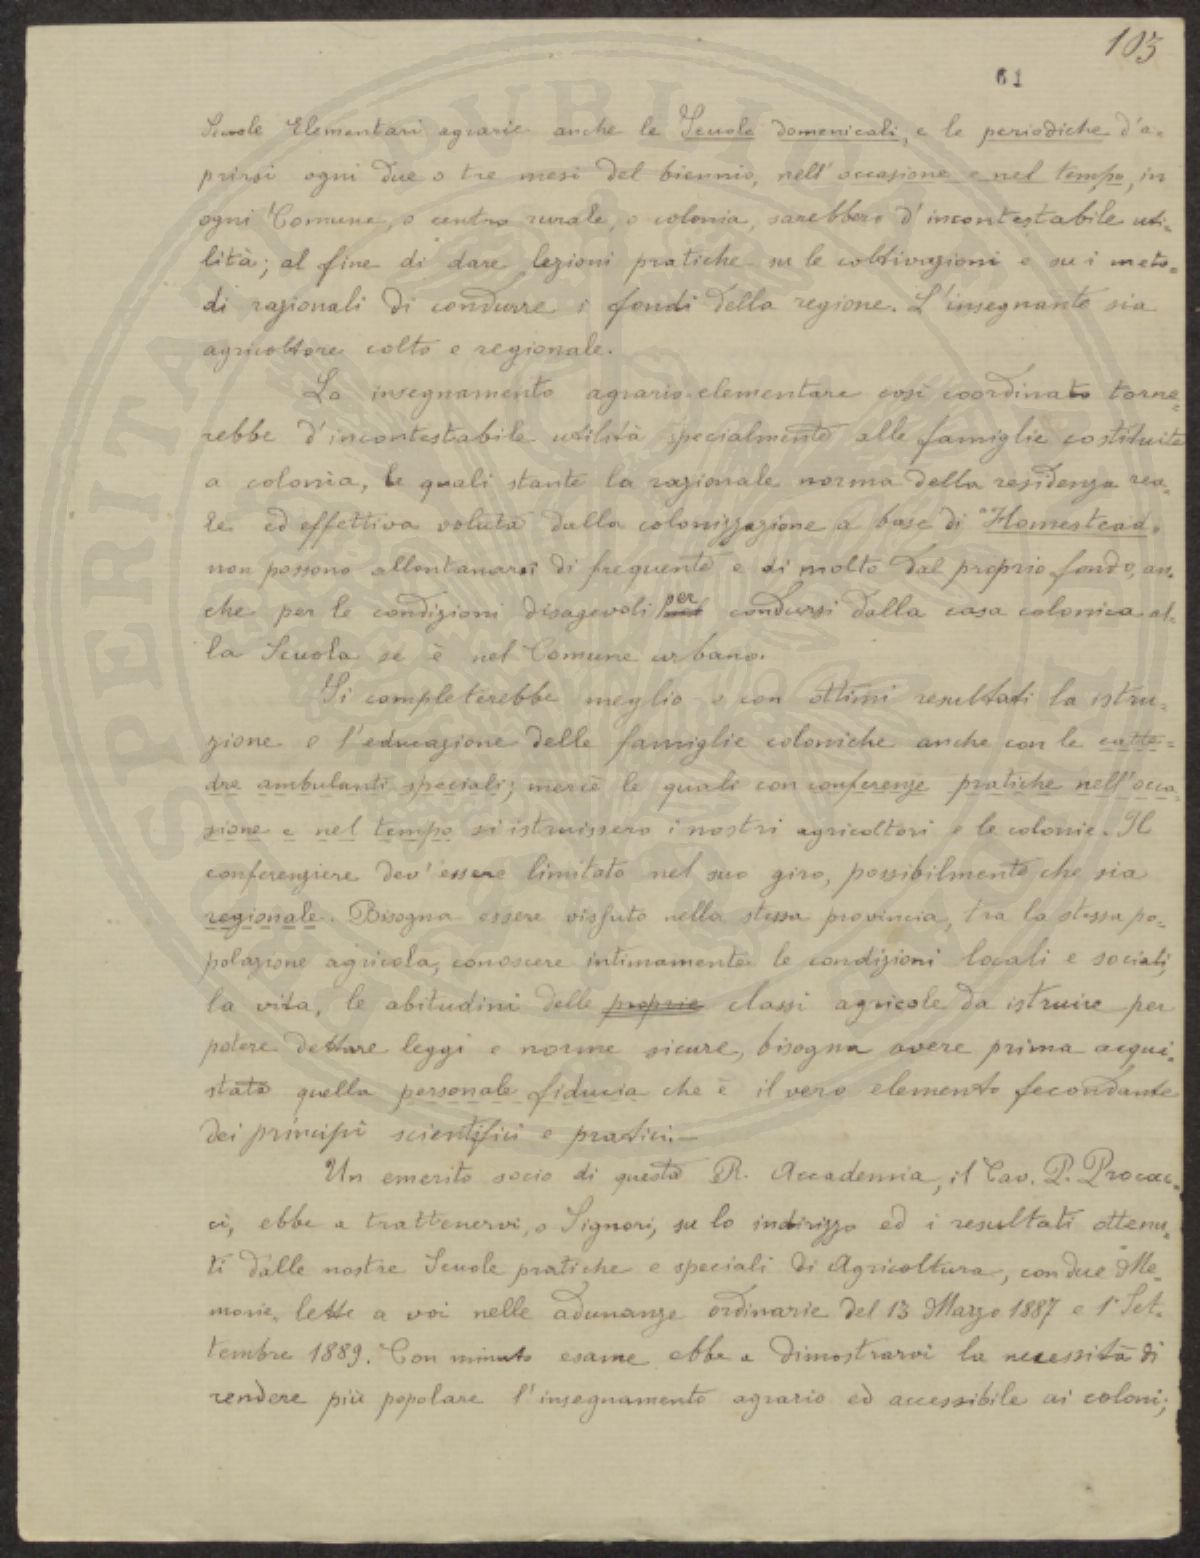 103
61
Scuole Elementari agrarie anche le Scuole domenicali, e le periodiche d'a-
prirsi ogni due o tre mesi del biennio, nell'occasione e nel tempo, in
ogni Comune, o centro rurale, o colonia, sarebbero d'incontestabile uti-
lità; al fine di dare lezioni pratiche su le coltivazioni e su i meto-
di razionali di condurre i fondi della regione. L'insegnante sia
agricoltore colto e regionale.
Lo insegnamento agrario elementare così coordinato torne-
rebbe d'incontestabile utilità specialmente alle famiglie costituite
a colonia, le quali stante la razionale norma della residenza rea-
le ed effettiva voluta dalla colonizzazione a base di "Homestead,
non possono allontanarsi di frequente e di molto dal proprio fondo, an-
che per le condizioni disagevoli per condursi dalla casa colonica al-
la Scuola se è nel Comune urbano.
Si completerebbe meglio e con ottimi resultati la istru-
zione e l'educazione delle famiglie coloniche anche con le catte-
dre ambulanti speciali; mercè le quali con conferenze pratiche nell'occa-
sione e nel tempo si istruissero i nostri agricoltori e le colonie. Il
conferenziere dev'essere limitato nel suo giro, possibilmente che sia
regionale. Bisogna essere vissuto nella stessa provincia, tra la stessa po-
polazione agricola, conoscere intimamente le condizioni locali e sociali,
la vita, le abitudini delle proprie classi agricole da istruire per
potere dettare leggi e norme sicure, bisogna avere prima acqui-
stata quella personale fiducia che è il vero elemento fecondante
dei principî scientifici e pratici.—
Un emerito socio di questa R. Accademia, il Cav. P. Procac-
ci, ebbe a trattenervi, o Signori, su lo indirizzo ed i resultati ottenu-
ti dalle nostre Scuole pratiche e speciali di Agricoltura, con due Me-
morie, lette a voi nelle adunanze ordinarie del 13 Marzo 1887 e 1° Set-
tembre 1889. Con minuto esame ebbe a dimostrarvi la necessità di
rendere più popolare l'insegnamento agrario ed accessibile ai coloni;